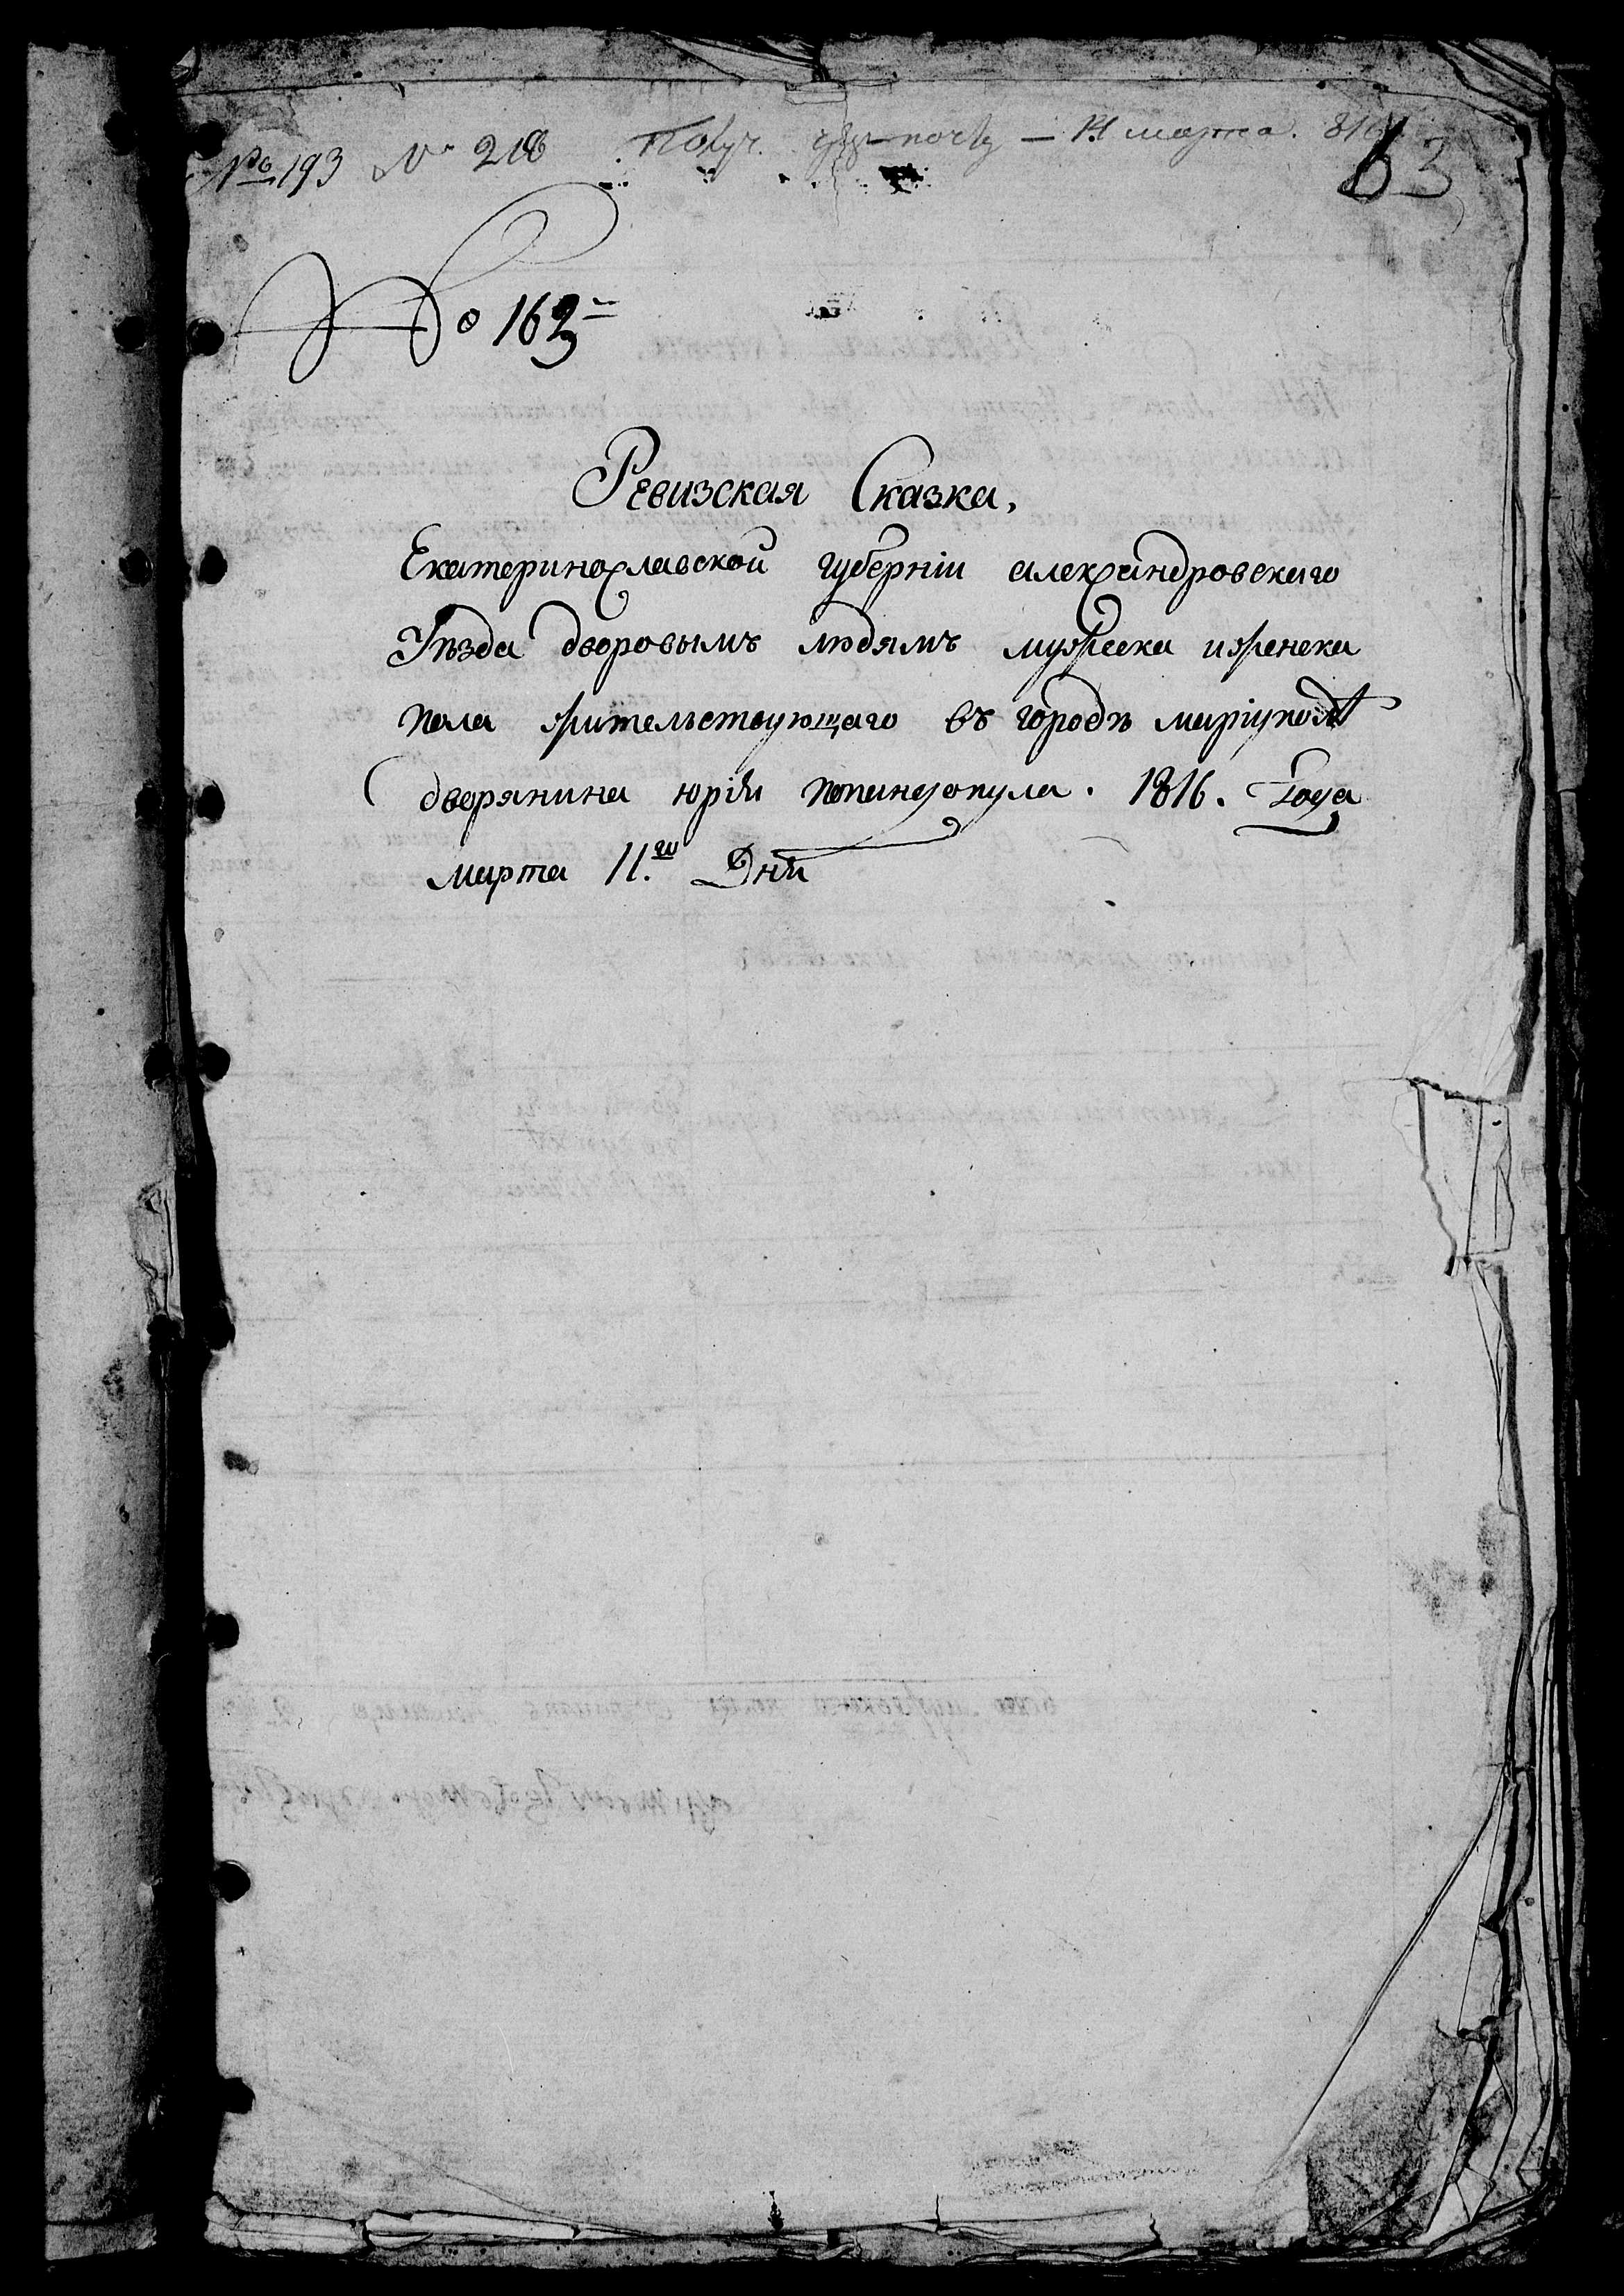 № 193 № 218 Получ. чрез почту — 14 марта. 816
63
№ 163
Ревизская Сказка,
Екатеринославской губерніи александровскаго
Уѣзда дворовымъ людямъ мужеска и женска
пола жительствующаго въ городѣ маріуполѣ
дворянина юрія попандопула. 1816. Года
марта 11.го Дня